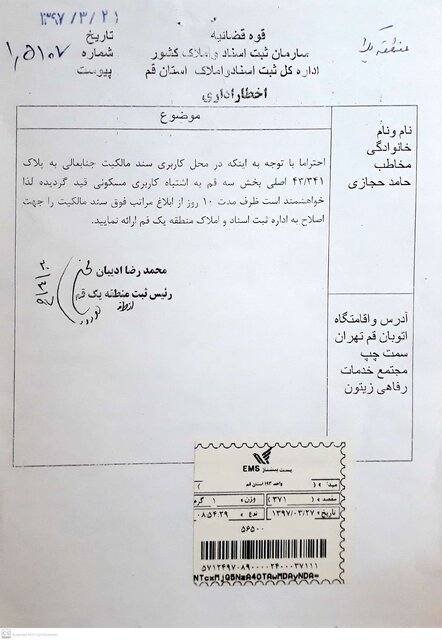 ۱۳۹۷/۳/۲۱
قوه قضائیه
تاریخ
سازمان ثبت اسناد و املاک کشور
شماره
اداره کل ثبت اسناد و املاک استان قم
پیوست
منطقه یک
اخطار اداری
موضوع
نام و نام
خانوادگی
مخاطب
حامد حجازی
احتراما با توجه به اینکه در محل کاربری سند مالکیت جنابعالی به پلاک
۴۳/۳۴۱ اصلی بخش سه قم به اشتباه کاربری مسکونی قید گردیده لذا
خواهشمند است ظرف مدت ۱۰ روز از ابلاغ مراتب فوق سند مالکیت را جهت
اصلاح به اداره ثبت اسناد و املاک منطقه یک قم ارائه نمایید.
محمد رضا ادیبان
رئیس ثبت منطقه یک قم
آدرس و اقامتگاه
اتوبان قم تهران
سمت چپ
مجتمع خدمات
رفاهی زیتون
EMS پست پیشتاز
واحد ۱۹۳ استان قم
مبدا
مقصد (۳۷۱)
وزن ۱ گرم
تاریخ ۱۳۹۷/۰۳/۲۷
نوع ۰۸:۵۴:۲۹
۵۶۵۰۰
۵۷۱۲۴۹۷۰۸۹۰۰۰۰۲۴۰۰۰۳۷۱۱۱
Scanned with CamScanner